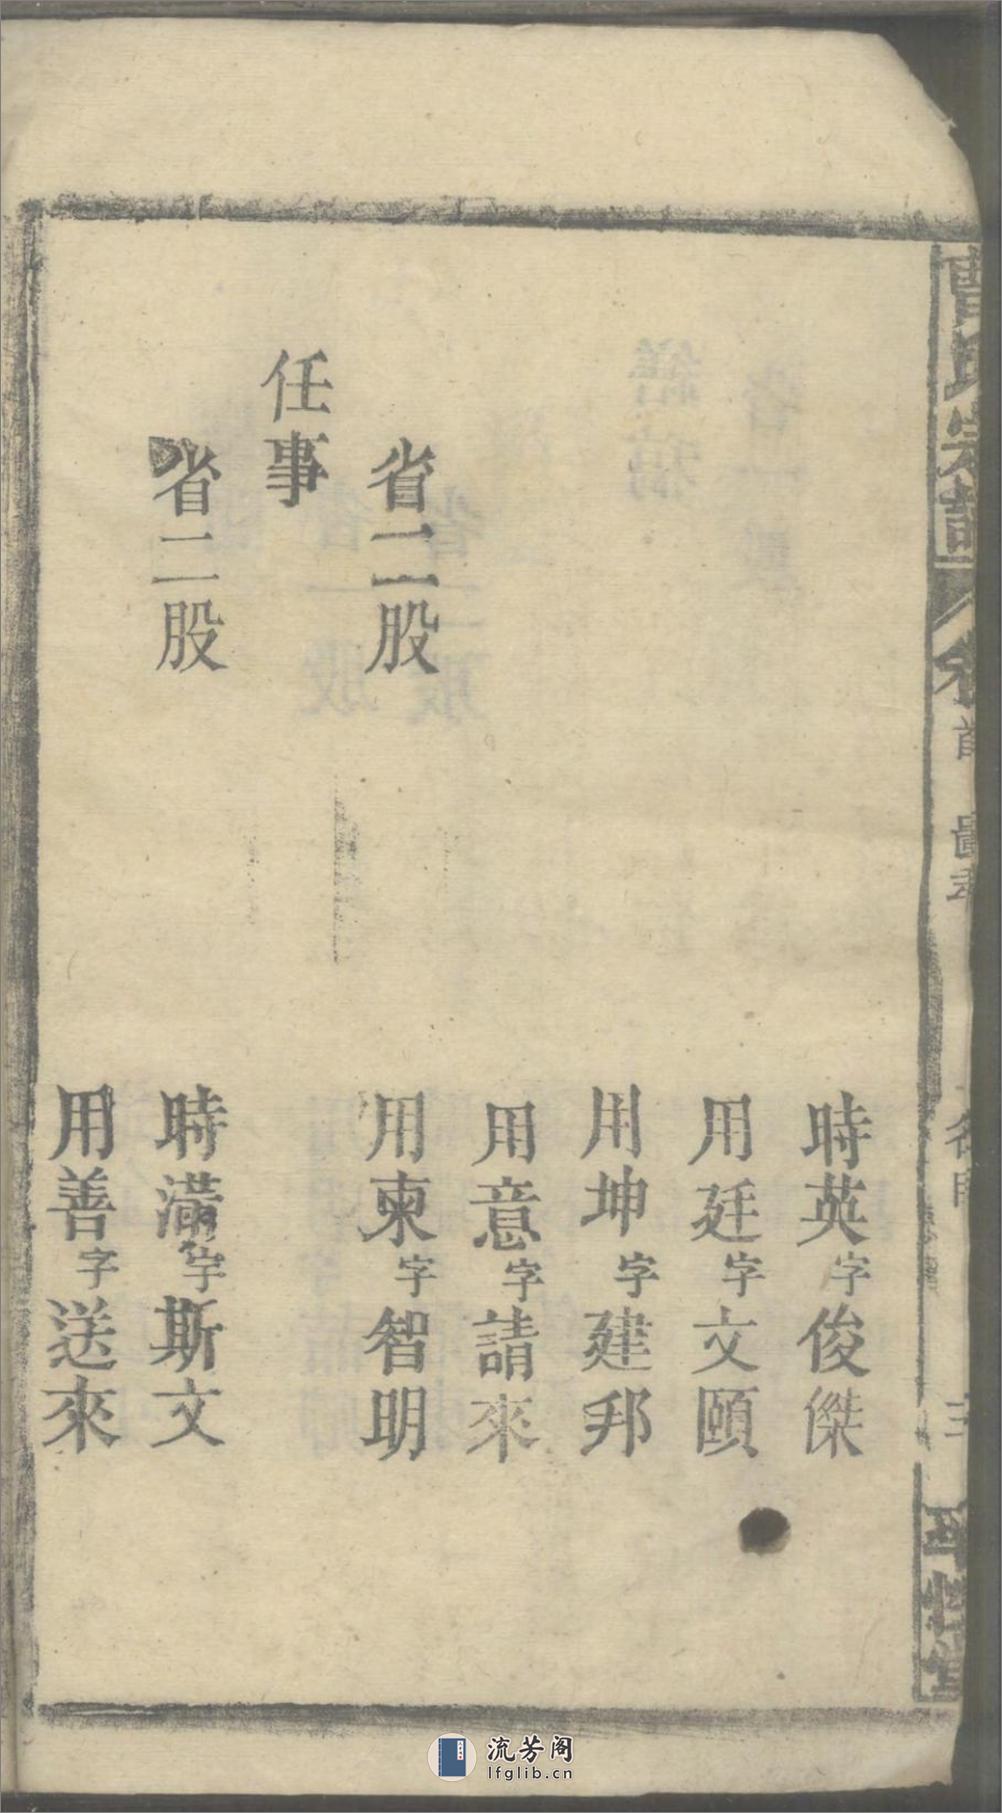 宗譜
卷首
時英字俊傑
用廷字文頤
用坤字建邦
用意字請來
省二股
用柬字智明
任事
省二股
時滿字斯文
用善字送來
流芳阁
lfglib.cn